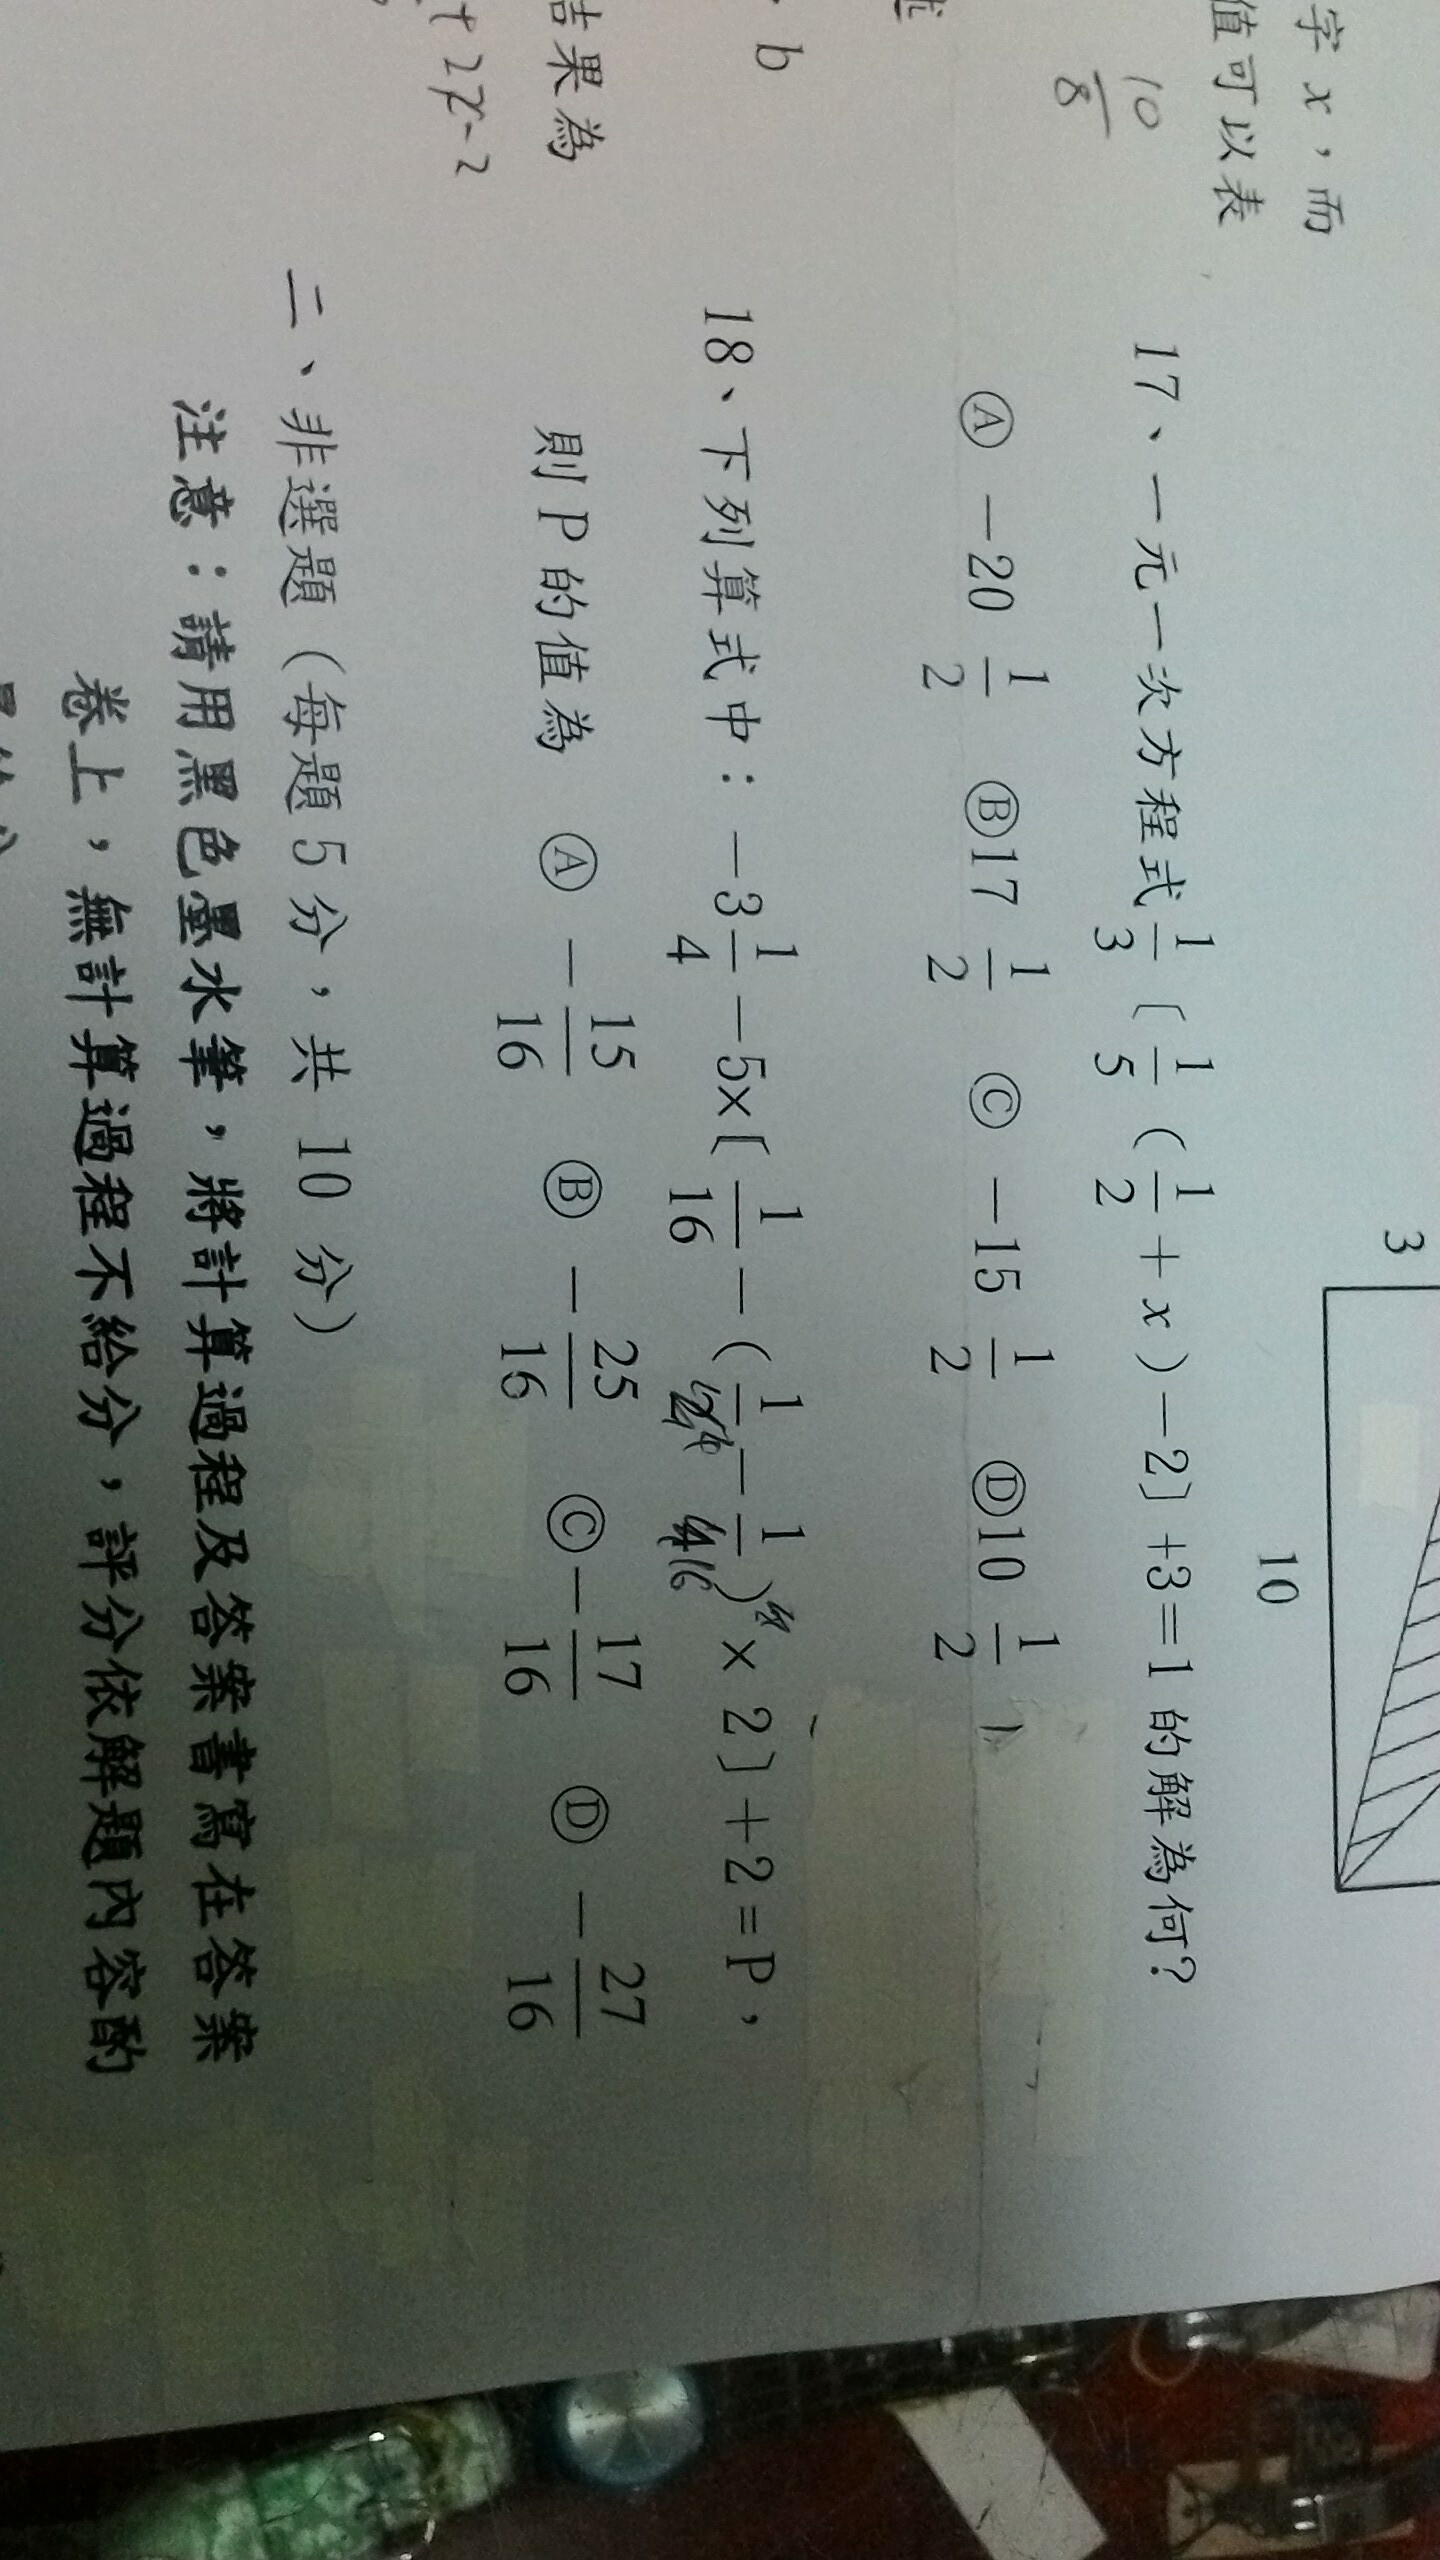 字 x，而
值可以表
10/8
3
10
17、一元一次方程式 1/3〔1/5（1/2＋x）－2〕+3＝1 的解為何？
Ⓐ －20 1/2 Ⓑ17 1/2 Ⓒ －15 1/2 Ⓓ10 1/2
b
18、下列算式中：－3 1/4－5×〔1/16－（1/－1/）× 2〕＋2＝P，
結果為
則 P 的值為 Ⓐ －15/16 Ⓑ －25/16 Ⓒ－17/16 Ⓓ －27/16
二、非選題（每題 5 分，共 10 分）
注意：請用黑色墨水筆，將計算過程及答案書寫在答案
卷上，無計算過程不給分，評分依解題內容酌